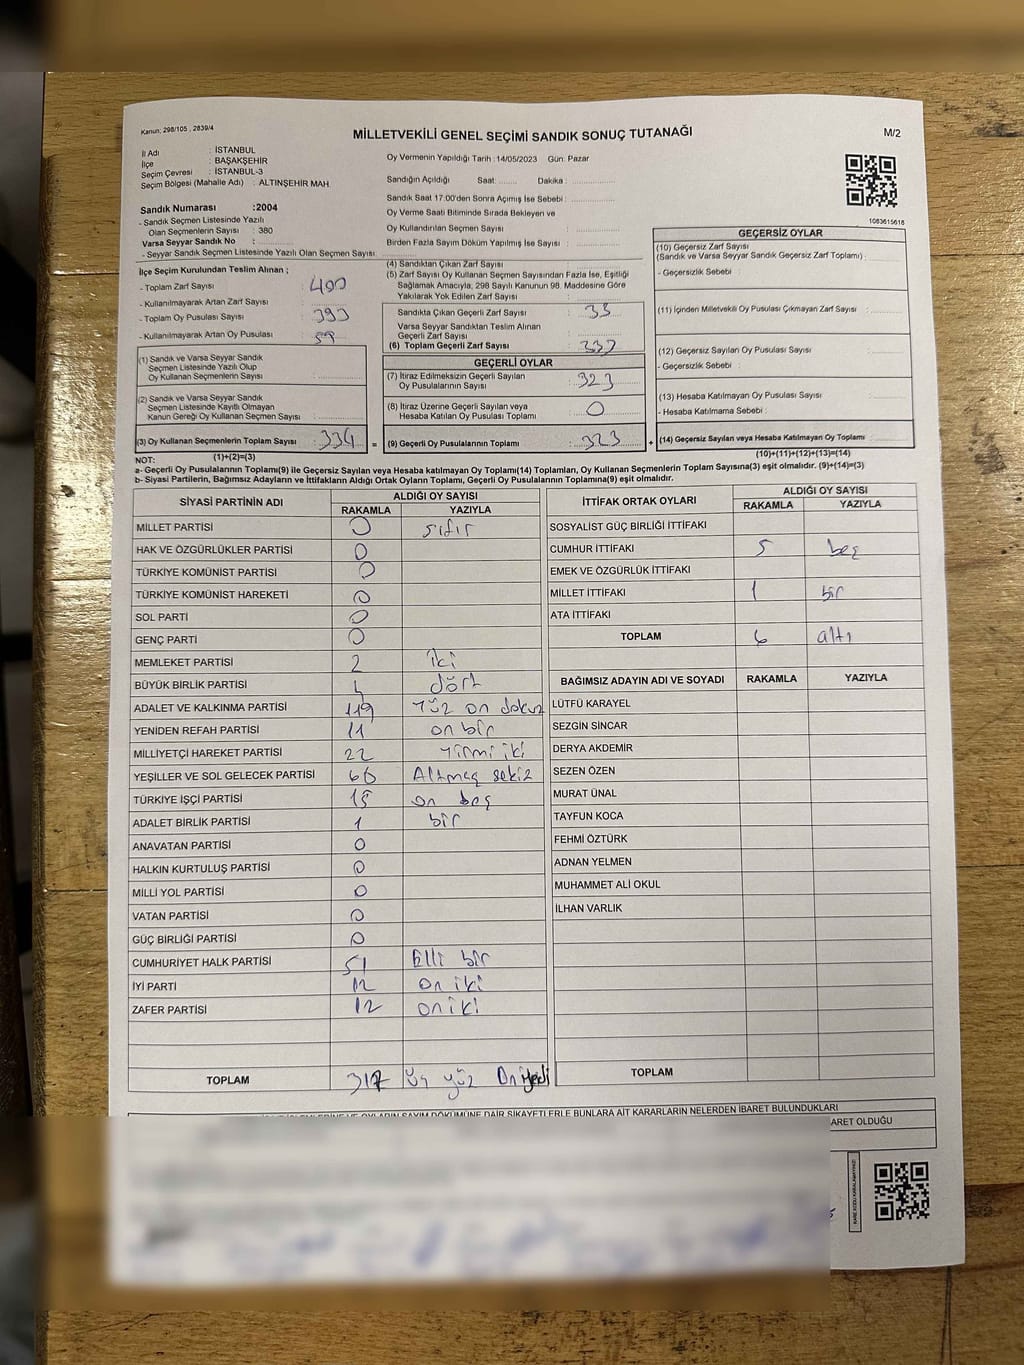 Kanun: 298/105 , 2839/4
MİLLETVEKİLİ GENEL SEÇİMİ SANDIK SONUÇ TUTANAĞI
M/2
İl Adı : İSTANBUL
İlçe : BAŞAKŞEHİR
Seçim Çevresi : İSTANBUL-3
Seçim Bölgesi (Mahalle Adı) : ALTINŞEHİR MAH.
Sandık Numarası :2004
- Sandık Seçmen Listesinde Yazılı
Olan Seçmenlerin Sayısı : 380
Varsa Seyyar Sandık No :
- Seyyar Sandık Seçmen Listesinde Yazılı Olan Seçmen Sayısı:
Oy Vermenin Yapıldığı Tarih :14/05/2023 Gün: Pazar
Sandığın Açıldığı Saat: Dakika :
Sandık Saat 17:00'den Sonra Açımış İse Sebebi :
Oy Verme Saati Bitiminde Sırada Bekleyen ve
Oy Kullandırılan Seçmen Sayısı :
Birden Fazla Sayım Döküm Yapılmış İse Sayısı :
1083615618
İlçe Seçim Kurulundan Teslim Alınan ;
- Toplam Zarf Sayısı : 400
- Kullanılmayarak Artan Zarf Sayısı :
- Toplam Oy Pusulası Sayısı : 393
- Kullanılmayarak Artan Oy Pusulası : 59
(1) Sandık ve Varsa Seyyar Sandık
Seçmen Listesinde Yazılı Olup
Oy Kullanan Seçmenlerin Sayısı :
(2) Sandık ve Varsa Seyyar Sandık
Seçmen Listesinde Kayıtlı Olmayan
Kanun Gereği Oy Kullanan Seçmen Sayısı :
(3) Oy Kullanan Seçmenlerin Toplam Sayısı : 334 =
(4) Sandıktan Çıkan Zarf Sayısı :
(5) Zarf Sayısı Oy Kullanan Seçmen Sayısından Fazla İse, Eşitliği
Sağlamak Amacıyla, 298 Sayılı Kanunun 98. Maddesine Göre
Yakılarak Yok Edilen Zarf Sayısı :
Sandıkta Çıkan Geçerli Zarf Sayısı :
Varsa Seyyar Sandıktan Teslim Alınan
Geçerli Zarf Sayısı :
(6) Toplam Geçerli Zarf Sayısı :
GEÇERLİ OYLAR
(7) İtiraz Edilmeksizin Geçerli Sayılan
Oy Pusulalarının Sayısı : 323
(8) İtiraz Üzerine Geçerli Sayılan veya
Hesaba Katılan Oy Pusulası Toplamı : 0
(9) Geçerli Oy Pusulalarının Toplamı : 323 +
GEÇERSİZ OYLAR
(10) Geçersiz Zarf Sayısı
(Sandık ve Varsa Seyyar Sandık Geçersiz Zarf Toplamı) :
- Geçersizlik Sebebi :
(11) İçinden Milletvekili Oy Pusulası Çıkmayan Zarf Sayısı :
(12) Geçersiz Sayılan Oy Pusulası Sayısı :
- Geçersizlik Sebebi :
(13) Hesaba Katılmayan Oy Pusulası Sayısı :
- Hesaba Katılmama Sebebi :
(14) Geçersiz Sayılan veya Hesaba Katılmayan Oy Toplamı :
NOT: (1)+(2)=(3)
(10)+(11)+(12)+(13)=(14)
a- Geçerli Oy Pusulalarının Toplamı(9) ile Geçersiz Sayılan veya Hesaba katılmayan Oy Toplamı(14) Toplamları, Oy Kullanan Seçmenlerin Toplam Sayısına(3) eşit olmalıdır. (9)+(14)=(3)
b- Siyasi Partilerin, Bağımsız Adayların ve İttifakların Aldığı Ortak Oyların Toplamı, Geçerli Oy Pusulalarının Toplamına(9) eşit olmalıdır.
SİYASİ PARTİNİN ADI ALDIĞI OY SAYISI
RAKAMLA YAZIYLA
MİLLET PARTİSİ 0 sıfır
HAK VE ÖZGÜRLÜKLER PARTİSİ 0
TÜRKİYE KOMÜNİST PARTİSİ 0
TÜRKİYE KOMÜNİST HAREKETİ 0
SOL PARTİ 0
GENÇ PARTİ 0
MEMLEKET PARTİSİ 2 iki
BÜYÜK BİRLİK PARTİSİ 4 dört
ADALET VE KALKINMA PARTİSİ 119 yüz on dokuz
YENİDEN REFAH PARTİSİ 11 on bir
MİLLİYETÇİ HAREKET PARTİSİ 22 yirmi iki
YEŞİLLER VE SOL GELECEK PARTİSİ Altmış sekiz
TÜRKİYE İŞÇİ PARTİSİ 15 on beş
ADALET BİRLİK PARTİSİ 1 bir
ANAVATAN PARTİSİ 0
HALKIN KURTULUŞ PARTİSİ 0
MİLLİ YOL PARTİSİ 0
VATAN PARTİSİ 0
GÜÇ BİRLİĞİ PARTİSİ 0
CUMHURİYET HALK PARTİSİ 51 Elli bir
İYİ PARTİ 12 on iki
ZAFER PARTİSİ 12 on iki
TOPLAM 317 Üç yüz On Yedi
İTTİFAK ORTAK OYLARI ALDIĞI OY SAYISI
RAKAMLA YAZIYLA
SOSYALİST GÜÇ BİRLİĞİ İTTİFAKI
CUMHUR İTTİFAKI 5 beş
EMEK VE ÖZGÜRLÜK İTTİFAKI
MİLLET İTTİFAKI 1 bir
ATA İTTİFAKI
TOPLAM 6 altı
BAĞIMSIZ ADAYIN ADI VE SOYADI RAKAMLA YAZIYLA
LÜTFÜ KARAYEL
SEZGİN SİNCAR
DERYA AKDEMİR
SEZEN ÖZEN
MURAT ÜNAL
TAYFUN KOCA
FEHMİ ÖZTÜRK
ADNAN YELMEN
MUHAMMET ALİ OKUL
İLHAN VARLIK
TOPLAM
SAYIM DÖKÜMÜNE DAİR ŞİKAYETLERLE BUNLARA AİT KARARLARIN NELERDEN İBARET BULUNDUKLARI
ARET OLDUĞU
KARE KODU KARALAMAYINIZ!